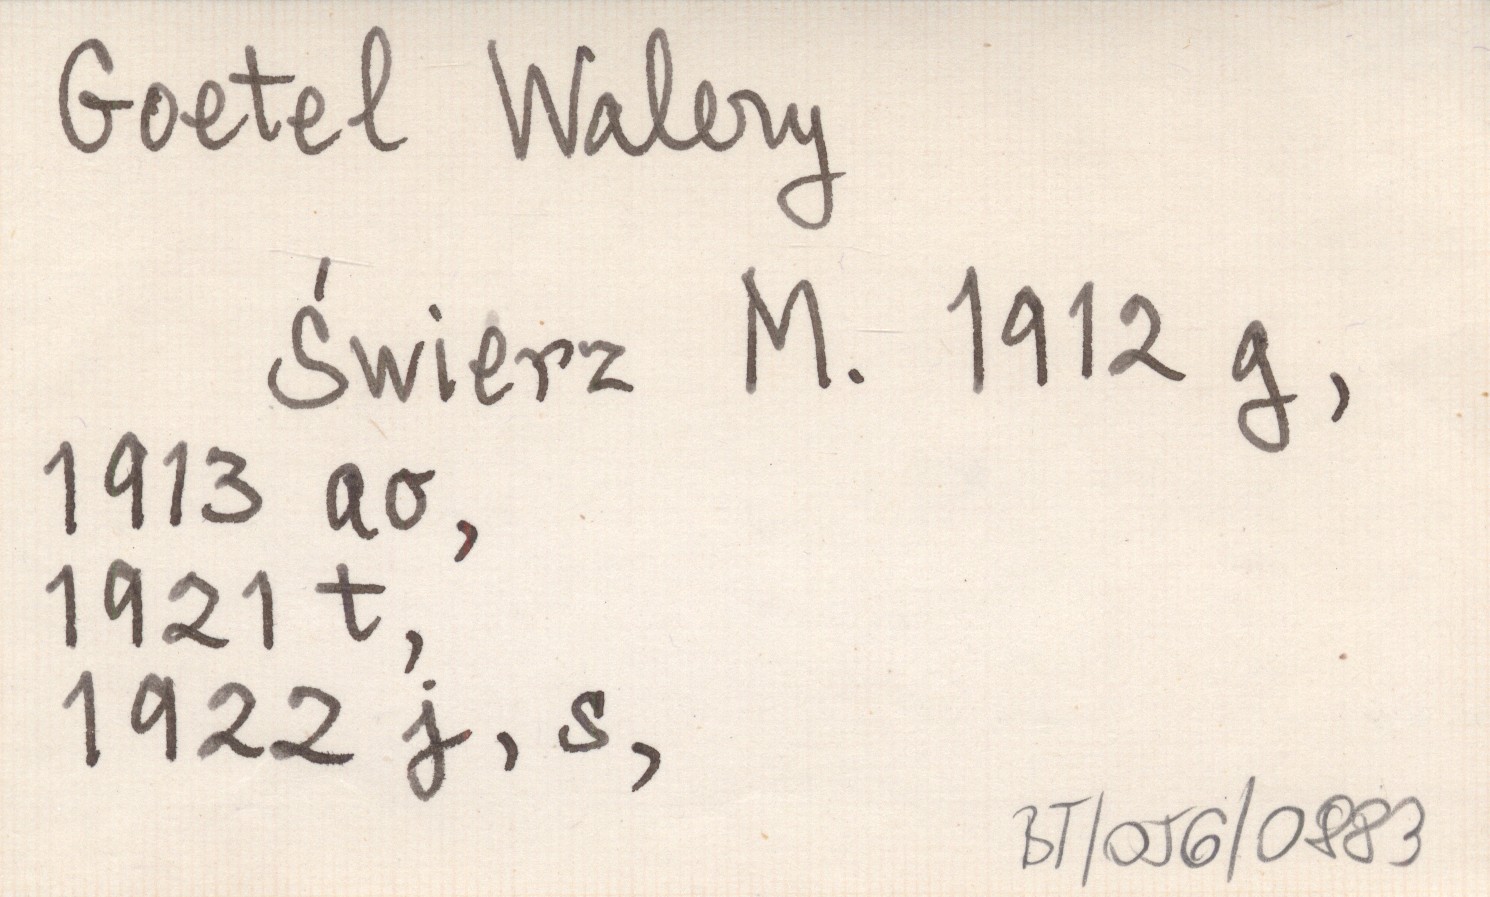 Goetel Walery
Świerz M. 1912 g,
1913 ao,
1921 t,
1922 j, s,
BT/056/0883